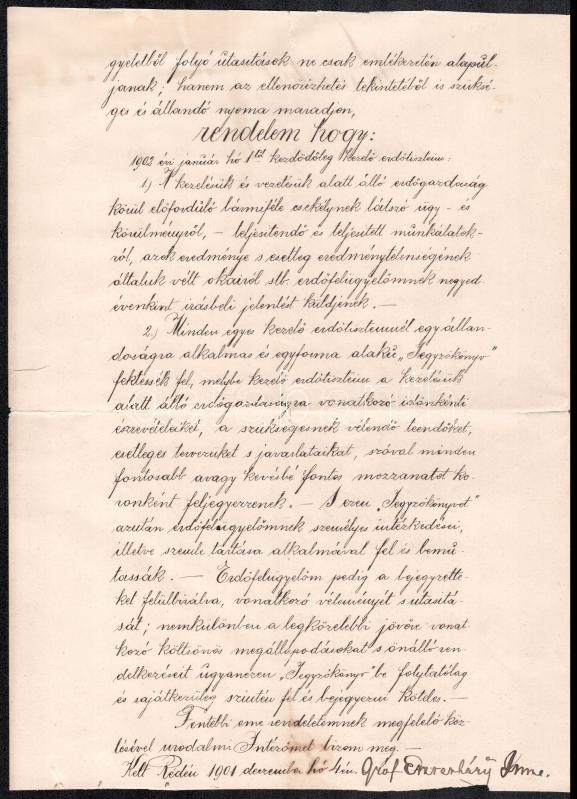 gyeletből folyó utasitások ne csak emlékezetén alapul-
janak; hanem az ellenőrizhetés tekintetéből is szüksé-
ges és állandó nyoma maradjon,
rendelem hogy:
1902 évi január hó 1től kezdődőleg kezelő erdőtiszteim:
1.) A kezelésük és vezetésük alatt álló erdőgazdaság
körül előforduló bármiféle csekélynek látszó ügy- és
körülményről, – teljesitendő és teljesitett munkálatok-
ról, azok eredménye s esetleg eredménytelenségének
általuk vélt okairól stb. erdőfelügyelőmnek negyed
évenkint irásbeli jelentést küldjenek. —
2.) Minden egyes kezelő erdőtisztemnél egy állan-
dóságra alkalmas és egyforma alaku „Jegyzőkönyv"
fektessék fel, melybe kezelő erdőtiszteim a kezelésük
alatt álló erdőgazdaságra vonatkozó időnkénti
észrevételeiket, a szükségesnek vélendő teendőket,
esetleges tervezüket s javaslataikat, szóval minden
fontosabb avagy kevésbé fontos mozzanatot ko-
ronként feljegyezzenek. — S ezen „Jegyzőkönyvet"
azután erdőfelügyelőmnek személyes intézkedései,
illetve szemle tartása alkalmával fel és bemu-
tassák. — Erdőfelügyelőm pedig a bejegyzette-
ket felülbirálva, vonatkozó véleményét s utasitá-
sát; nemkülönben a legközelebbi jövőre vonat
kozó kölcsönös megállapodásokat s önálló ren-
delkezéseit ugyanezen „Jegyzőkönyv"be folytatólag
és sajátkezüleg szintén fel és bejegyezni köteles. —
Fentebbi eme rendeletemnek megfelelő köz-
lésével uradalmi Intézőmet bizom meg. —
Kelt Rédén 1901 deczember hó 4én. Gróf Imre.